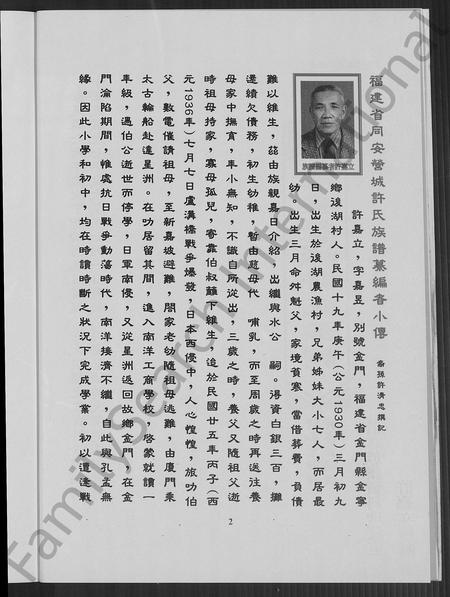 福建省同安營城許氏族譜纂編者小傳
裔孫許清忠撰記
許嘉立，字嘉昱，別號金門，福建省金門縣金寧
鄉後湖村人。民國十九年庚午(公元1930年)三月初九
日，出生於後湖農漁村，兄弟姊妹大小七人，而居最
幼。出生三月命舛魁父，家境貧寒，當借葬費，負債
立嘉許者編纂譜族
難以維生，茲由族親嘉日介紹，出繼與水公 嗣。得資白銀三百，攤
還續欠債務，初生幼稚，暫由慈母代 哺乳，而至周歲之時再送往養
母家中撫育，年小無知，不識自所從出，三歲之時，養父又隨祖父逝
時祖母持家，寡母孤兒，寄靠伯叔籬下維生，迨於民國廿五年丙子(西
元1936年)七月七日盧溝橋戰爭爆發，日本西侵中，人心惶惶，旅叻伯
父，數電催請祖母，至新嘉坡避難，閤家老幼隨祖母逃難，由廈門乘
太古輪船赴達星洲。在叻居留其間，進入南洋工商學校，啓蒙就讀一
年級，遇伯公逝世而停學，日軍南侵，又從星洲返回故鄉金門，在金
門淪陷期間，惟處抗日戰爭動蕩時代，南洋接濟不繼，自此與孔孟無
緣。因此小學和初中，均在時讀時斷之狀況下完成學業。初以遭逢戰
2
FamilySearch International